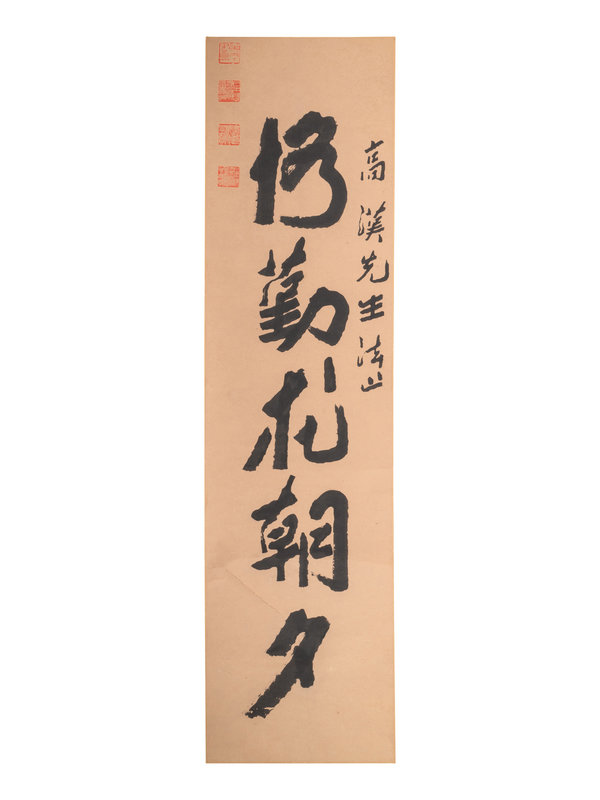 高漢先生法正
恪勤在朝夕